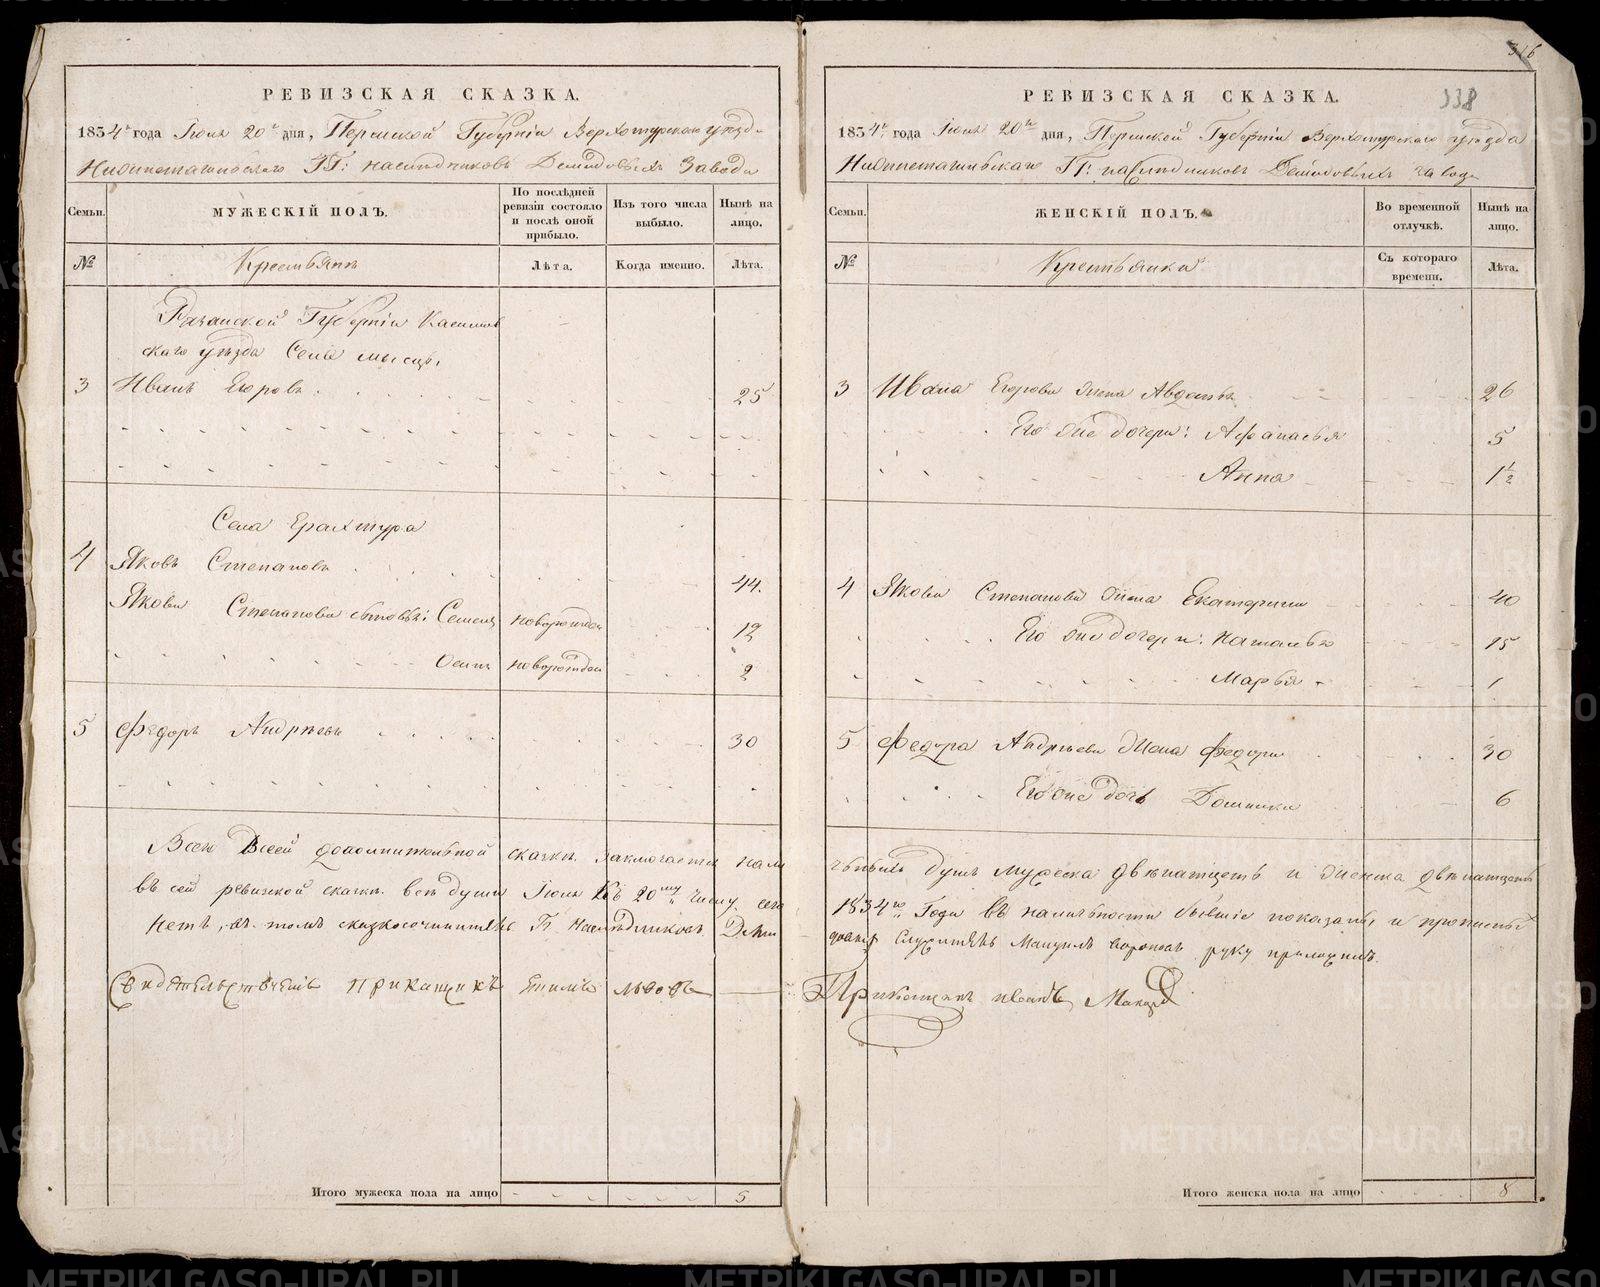 316
338
РЕВИЗСКАЯ СКАЗКА.
1834го года Іюля 20го дня, Пермской Губерніи Верхотурскаго уезда
Нижнетагильскаго ГГ: наследниковъ Демидовыхъ Завода
Семьи. МУЖЕСКІЙ ПОЛЪ. По послѣдней ревизіи состояло и послѣ оной прибыло. Изъ того числа выбыло. Нынѣ на лицо.
№ Крестьянъ Лѣта. Когда именно. Лѣта.
Рязанской Губерніи Касимов
скаго уѣзда Села мысцъ,
3 Иванъ Егоровъ 25
Села Ерахтура
4 Яковъ Степановъ 44.
Якова Степанова сыновья: Семенъ новорожден 12
Осипъ новорожден 2
5 Федоръ Андреевъ 30
Всего Всеей дополнительной сказки заключается нали
въ сей ревизской сказки все души Іюля Къ 20му числу сего
нетъ, въ томъ сказкосочинитель Г. Наследниковъ Деми
Свидетельствуемъ Приканщикъ Львовъ
Итого мужеска пола на лицо 5
РЕВИЗСКАЯ СКАЗКА.
1834го года Іюля 20го дня, Пермской Губерніи Верхотурскаго уезда
Нижнетагильскаго ГГ: наследниковъ Демидовыхъ завода
Семьи. ЖЕНСКІЙ ПОЛЪ. Во временной отлучкѣ. Нынѣ на лицо.
№ Крестьянки Съ котораго времени. Лѣта.
3 Ивана Егорова жена Авдотья 26
Его же дочери: Афанасья 5
Анна 1½
4 Якова Степанова жена Екатерина 40
Его же дочери: Наталья 15
Марья 1
5 Федора Андреева жена Федора 30
Его же дочь Домника 6
душъ мужеска двенатцеть и женска двенатцеть
1834го Года въ наличности бывшіе показаны, и прописныхъ
довыхъ Служитель руку приложилъ.
Прикащикъ Иванъ
Итого женска пола на лицо 8